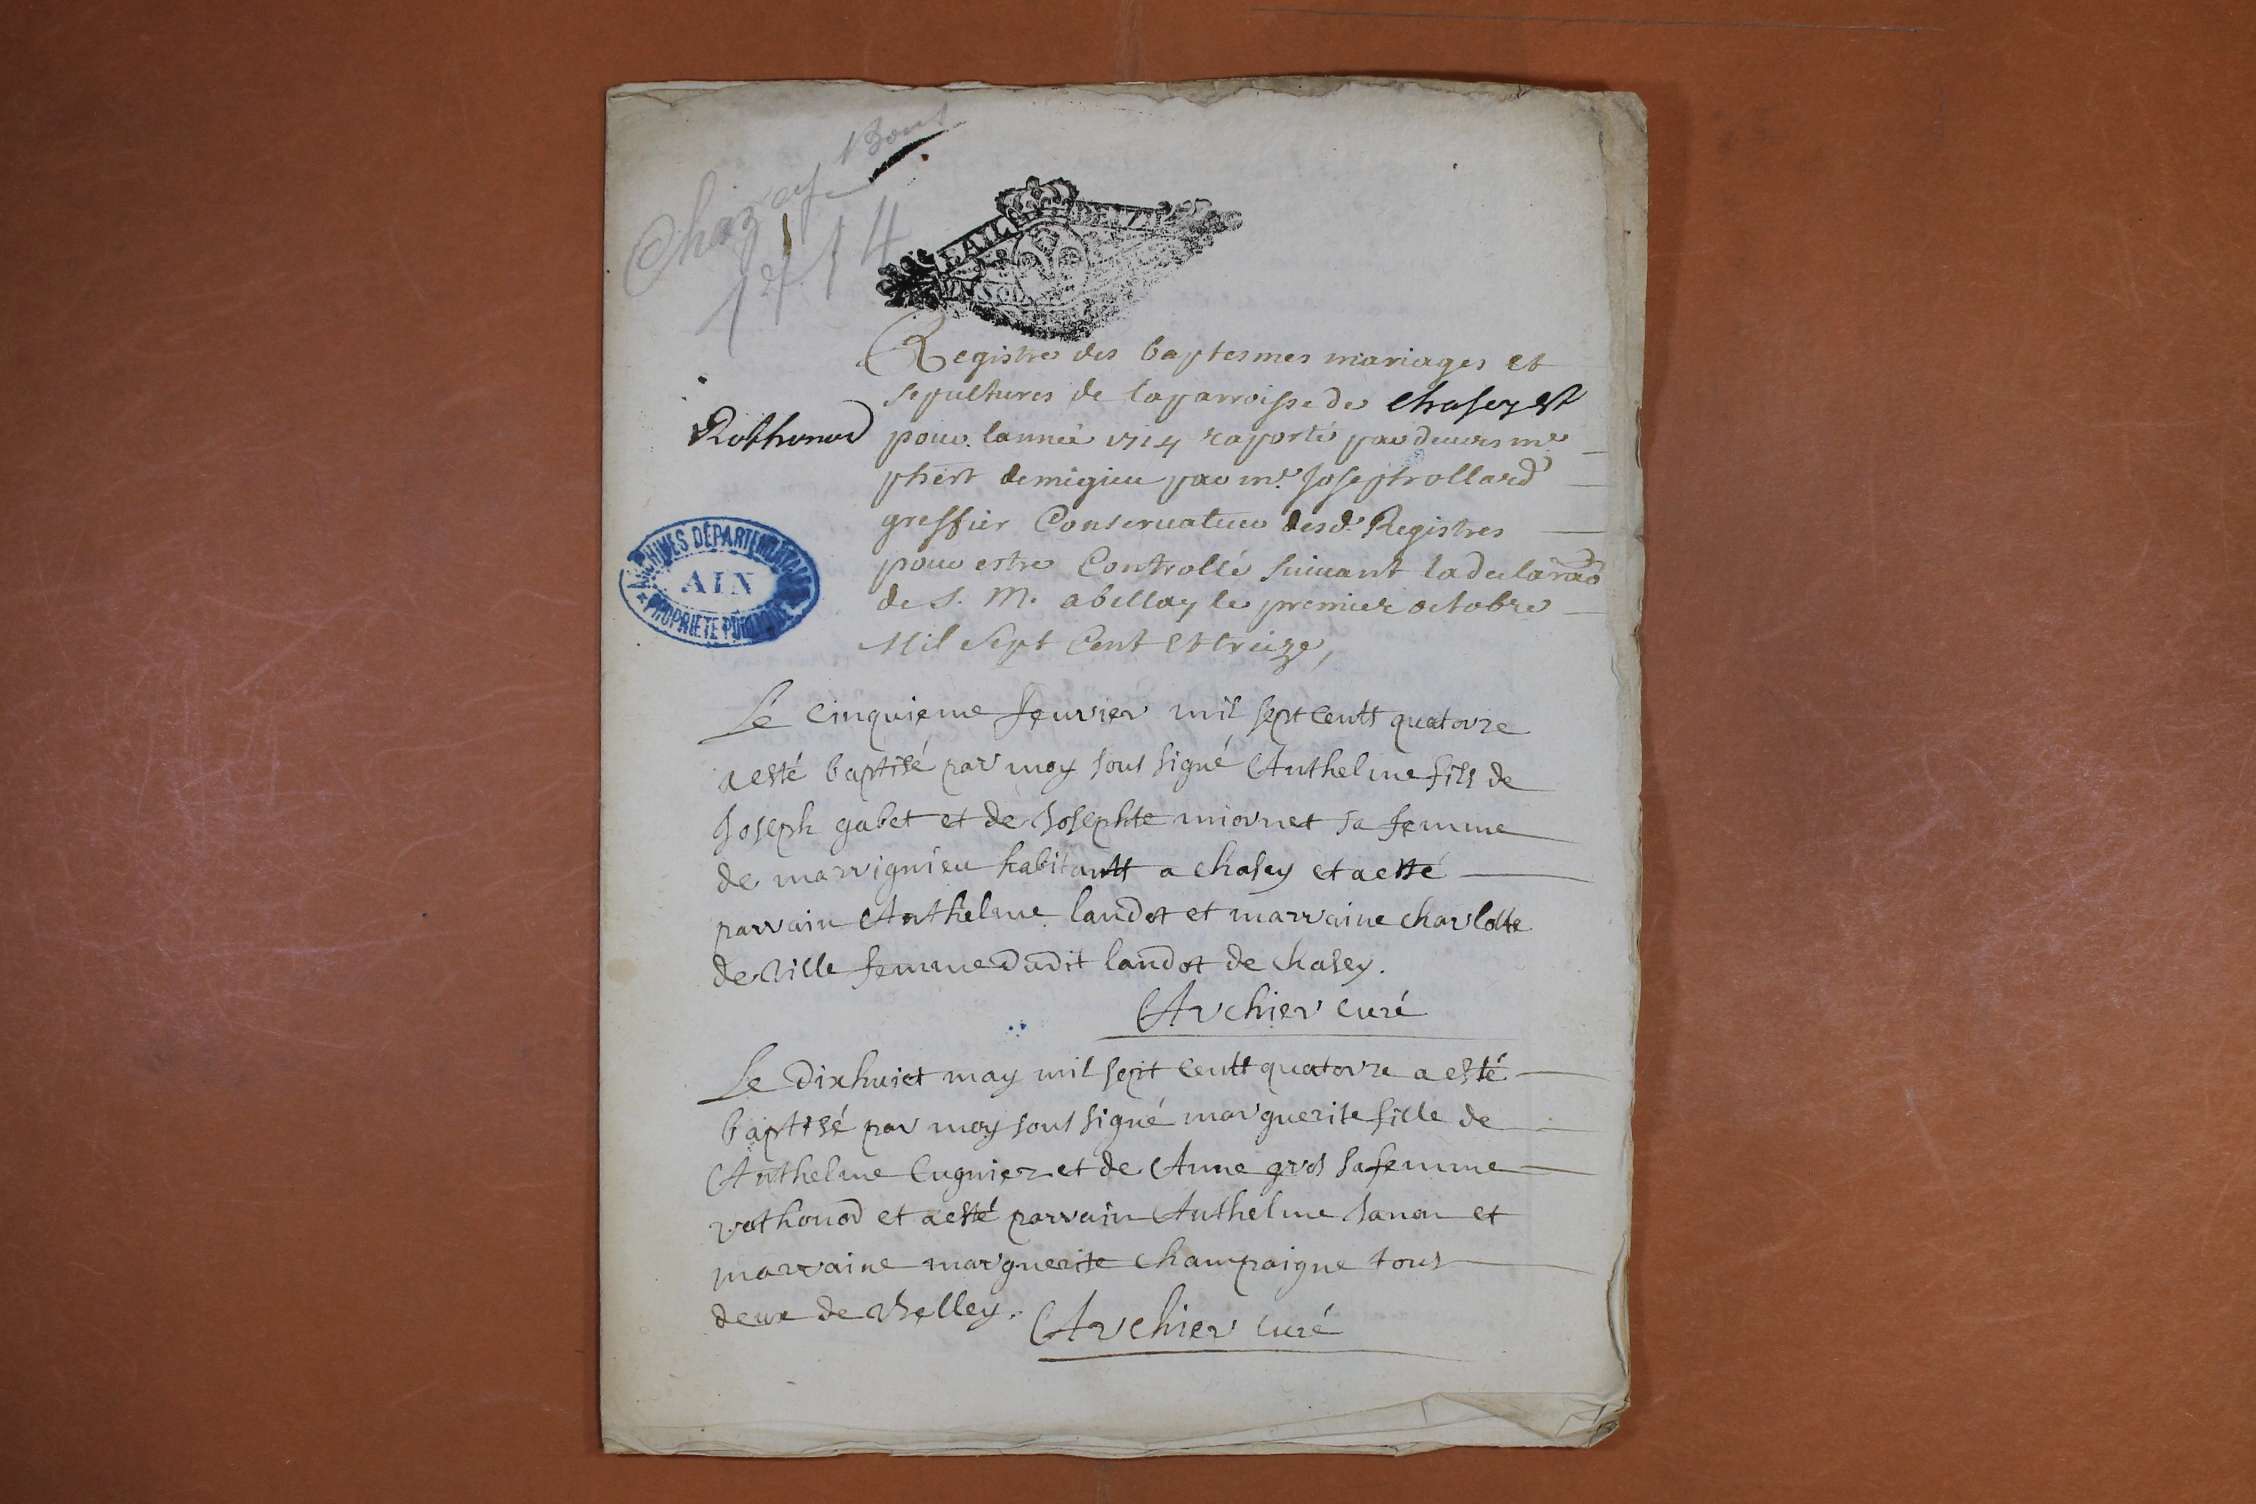 Chazey Bons
1714
GAIL
Registre des baptesmes mariages et
sepultures de la parroisse de Chasey et
Rothonod
pour lannée 1714 raporté par deuers me
phert demigieu par mr. Joseph rollard
greffier Conseruateur desd. Registres
pour estre Controllé suiuant la declaraõ
de S. M. a bellay le premier octobre
Mil Sept Cent et treize,
ARCHIVES DÉPARTEMENTALES
AIN
PROPRIÉTÉ PUBLIQUE
Le Cinquieme feuvrier mil sept centt quatorze
a esté baptisé par moy sous signé Anthelme fils de
Joseph gabet et de Josephte miornet sa femme
de marrignieu habitantt a chasey et a esté
parrain Anthelme landot et marraine charlotte
deville femme dudit landot de chasey.
Archier curé
Le dixhuict may mil sept centt quatorze a esté
baptisé par moy sous signé marguerite fille de
Anthelme Cugnier et de Anne gros sa femme
rothonod et a esté parrain Anthelme Janon et
marraine marguerite champaigne tous
deux de Belley. Archier curé